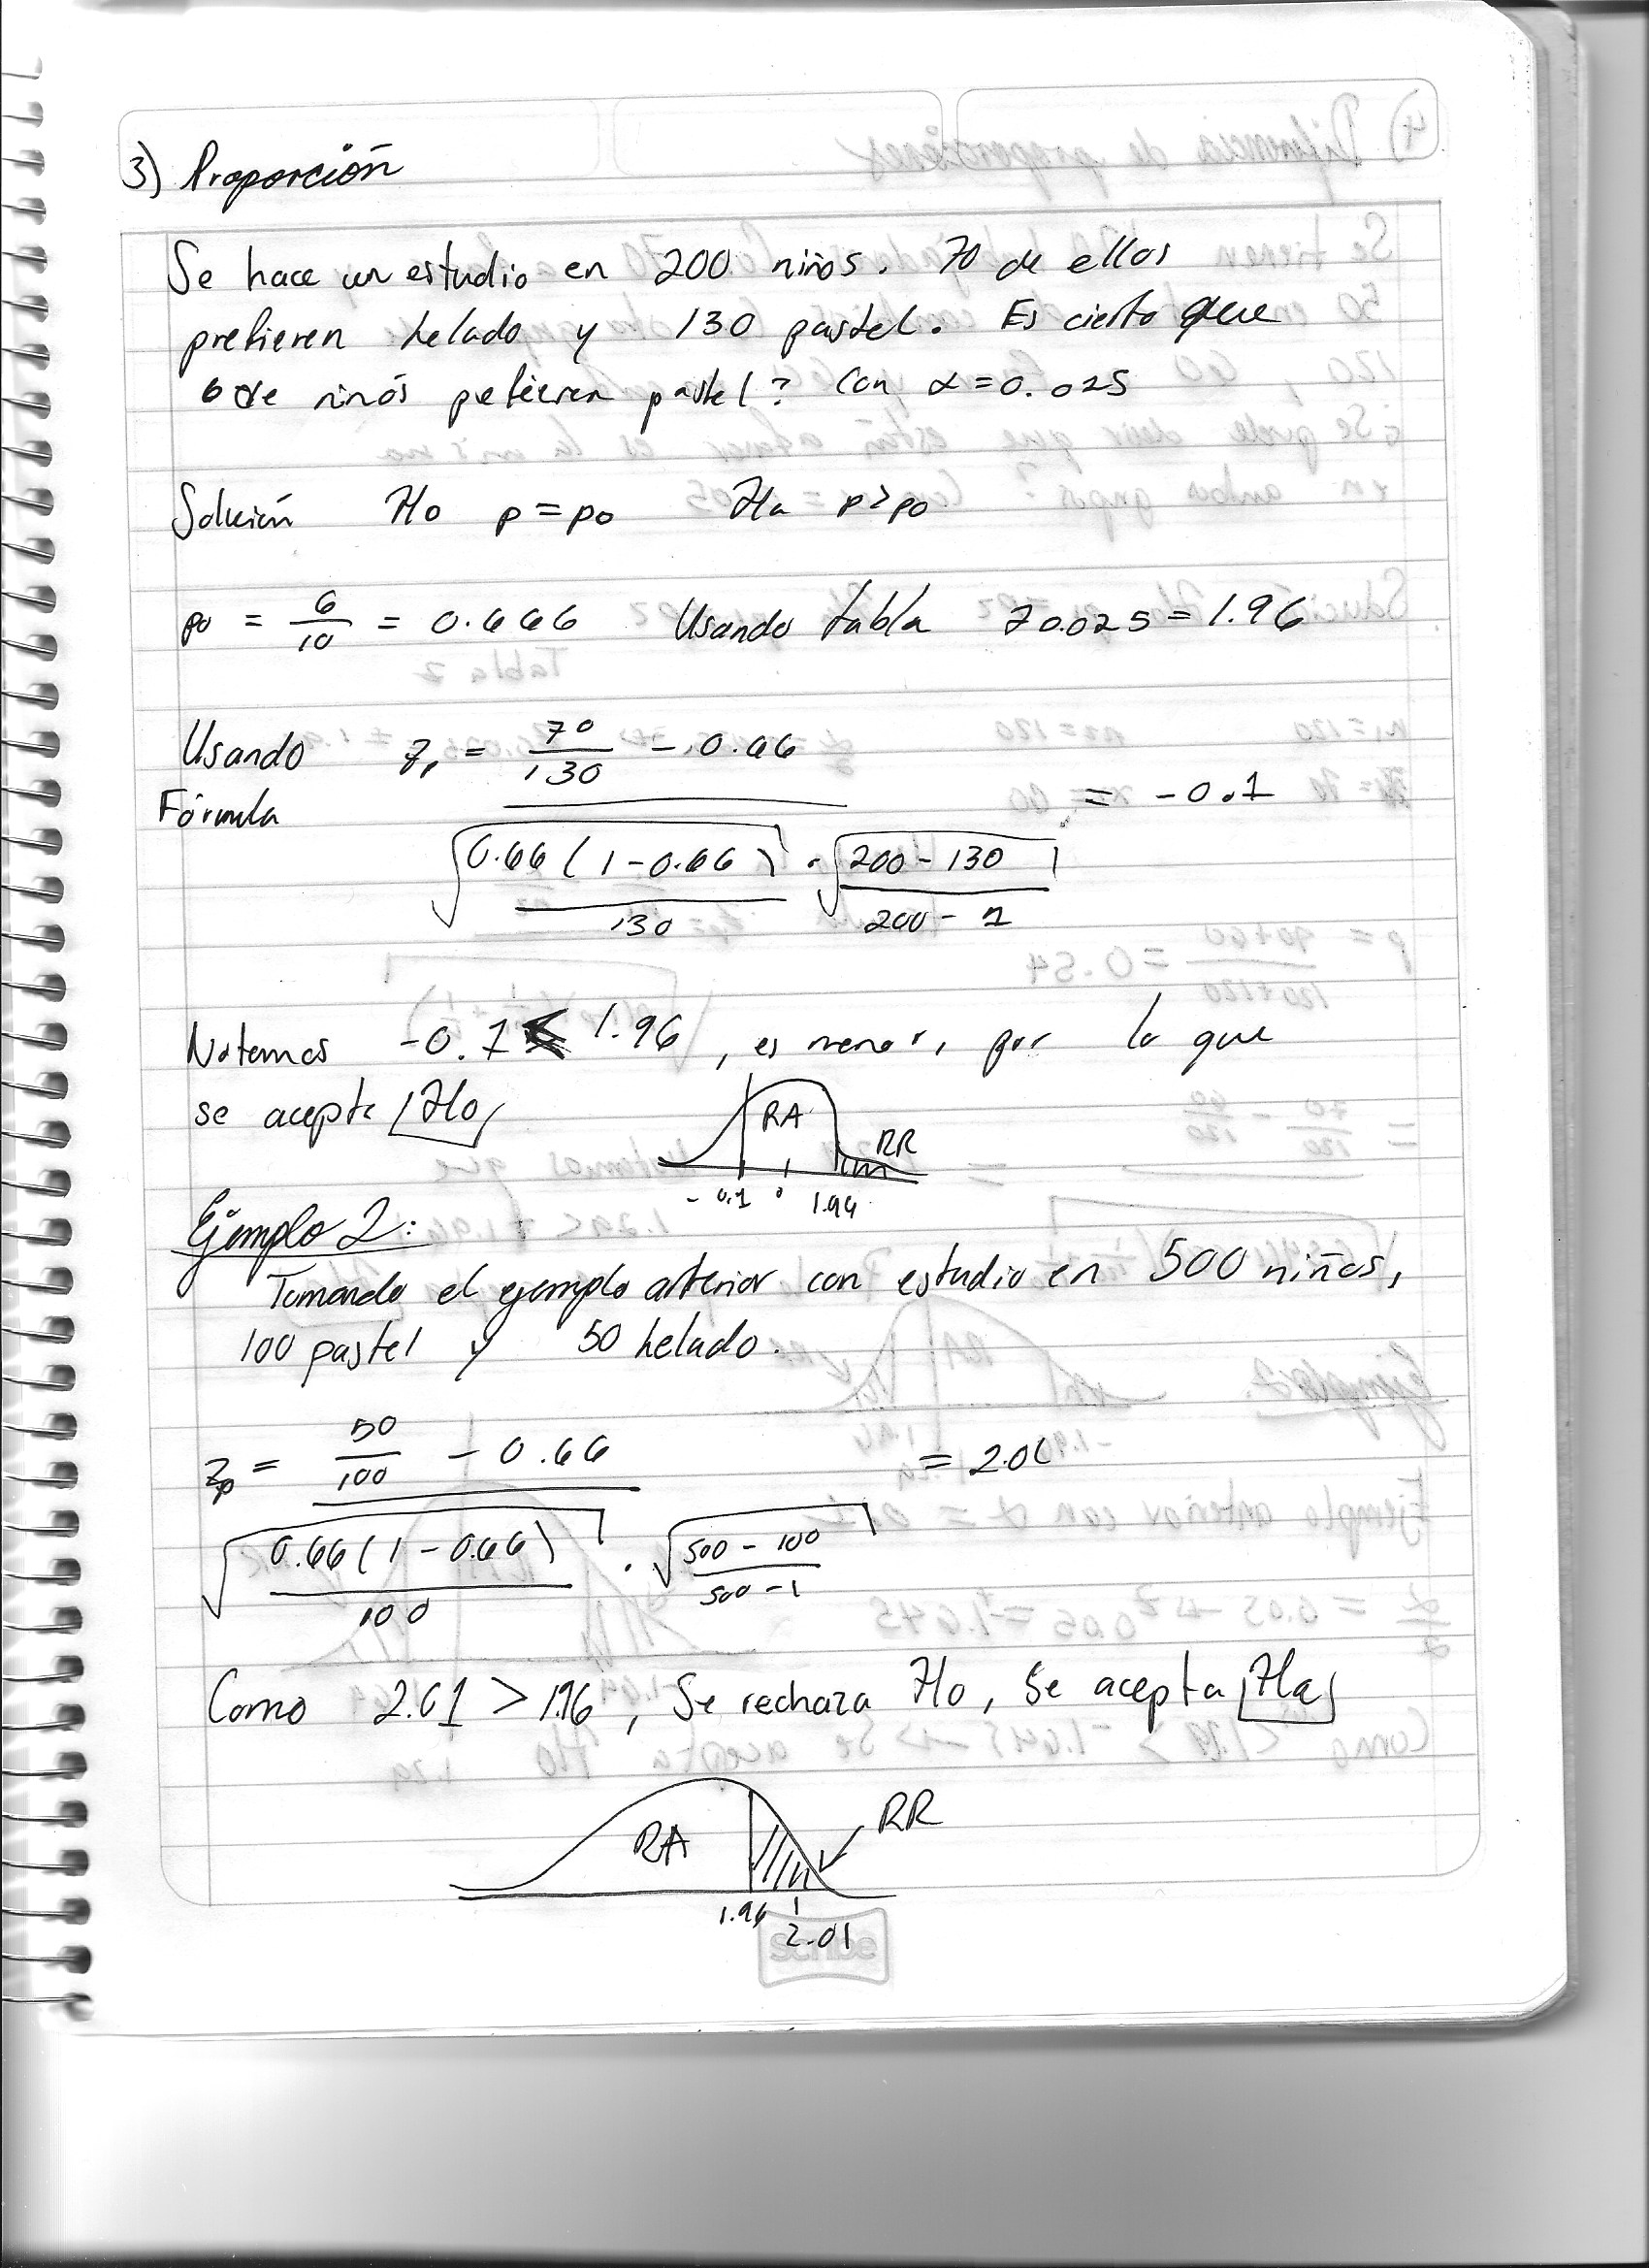 3) Proporción
Se hace un estudio en 200 niños. 70 de ellos
prefieren helado y 130 pastel. Es cierto que
6 de niños prefieren pastel? Con α=0.025
Solución Ho p=po Ha p>po
po = 6/10 = 0.666 Usando tabla z0.025=1.96
Usando z = 70/130 - 0.66
= -0.1
Fórmula
√0.66(1-0.66)/130 · √200-130/200-1
Notemos -0.1 < 1.96, es menor, por lo que
se acepta Ho
RA RR
-0.1 0 1.96
Ejemplo 2:
Tomando el ejemplo anterior con estudio en 500 niños,
100 pastel y 50 helado.
zp = 50/100 - 0.66 = 2.01
√0.66(1-0.66)/100 · √500-100/500-1
Como 2.01 > 1.96, Se rechaza Ho, Se acepta Ha
RA RR
1.96
2.01
scribe